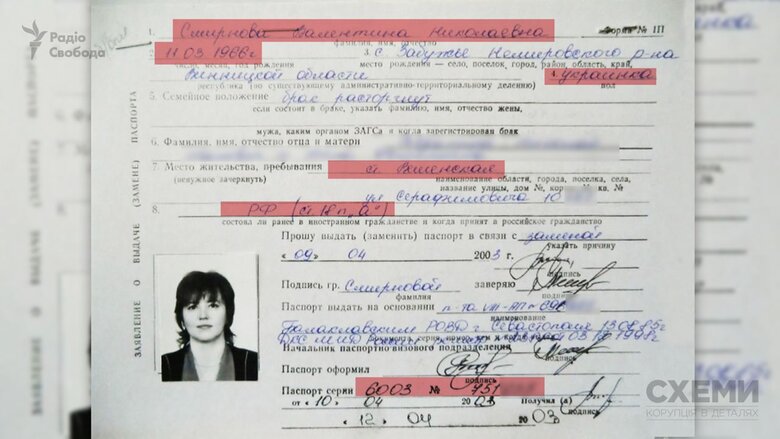 Радіо
Свобода
1. Смирнова Валентина Николаевна
Форма № 1П
фамилия, имя, отчество
11.03.1966г 3. с. Забужье Немировского р-на
число, месяц, год рождения место рождения — село, поселок, город, район, область, край,
Винницкой области 4. украинка
республика (по существующему административно-территориальному делению) пол
5. Семейное положение брак расторгнут
если состоит в браке, указать фамилию, имя, отчество жены,
мужа, каким органом ЗАГСа и когда зарегистрирован брак
6. Фамилия, имя, отчество отца и матери
7. Место жительства, пребывания
(ненужное зачеркнуть) наименование области, города, поселка, села,
название улицы, дом №, кор № кв. №
ул Серафимовича 10
8. РФ (ст 18 п „а")
состоял ли ранее в иностранном гражданстве и когда принят в российское гражданство
Прошу выдать (заменить) паспорт в связи с заменой
указать причину
« 09 » 04 2003 г.
подпись
Подпись гр. Смирновой заверяю
фамилия подпись
Паспорт выдать на основании п-та VIII-АП №
наименование
Балаклавским РОВД г Севастополя 13.08.85г
03.12.1998г
Начальник паспортно визового подразделения
подпись
Паспорт оформил
подпись
Паспорт серии 6003 № 751
от « 10 » 04 2003 Получил (а)
« 12 » 04 2003 подпись
ЗАЯВЛЕНИЕ О ВЫДАЧЕ (ЗАМЕНЕ) ПАСПОРТА
СХЕМИ
КОРУПЦІЯ В ДЕТАЛЯХ